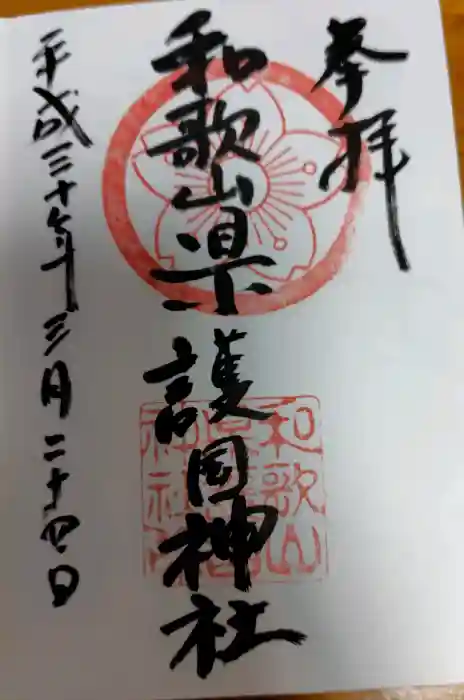 奉拝
和歌山県護国神社
平成三十年三月二十四日
和歌山
県護国
神社